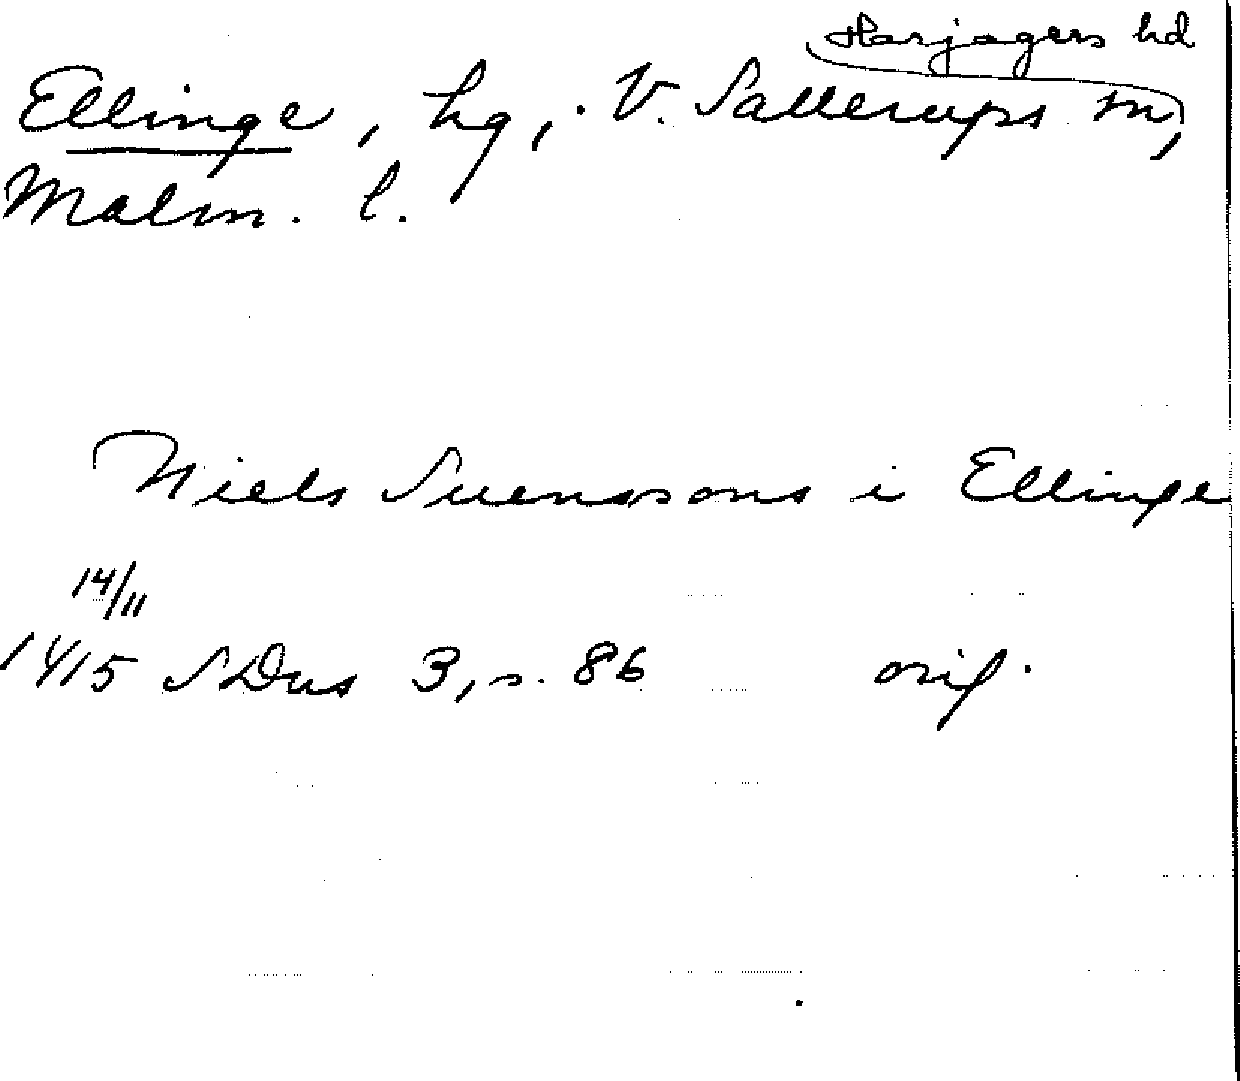 Harjagers hd
Ellinge, hg, V. Sallerups sn,
Malm. l.
Niels Suenssons i Ellinge
14/11
1415 SDns 3, s. 86 orig.